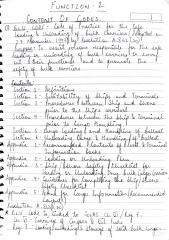 FUNCTION - 2
CONTENT OF CODES
BLU CODE - Code of Practice for the safe
Loading & Unloading of bulk carriers (Adopted on
27 November 1997 by Resolution A.862(20))
Purpose: to assist persons responsible for the safe
loading or unloading of bulk carriers to carry
out their functions and to promote the
safety of bulk carriers
Contents:
Section 1 - Definitions
Section 2 - Suitability of Ships and Terminals
Section 3 - Procedures between Ship and Shore
prior to the ship's arrival
Section 4 - Procedures between the Ship & Terminal
prior to Cargo Handling
Section 5 - Cargo Loading and Handling of Ballast
Section 6 - Unloading Cargo & Handling of Ballast
Appendix 1 - Recommended Contents of Port & Terminal
Information books
Appendix 2 - Loading or Unloading Plan
Appendix 3 - Ship / Shore Safety Checklist for
Loading or Unloading Dry Bulk Cargo Carriers
Appendix 4 - Guidelines for Completing the Ship/Shore
Safety Checklist
Appendix 5 - Form for Cargo Information (Recommended
Resolution A.862(20)
BLU Code is linked to SOLAS Ch VI / Reg 7